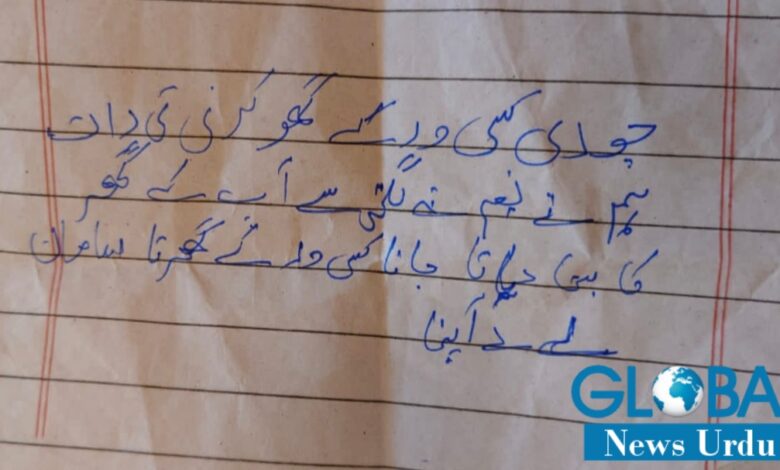 چودی کسی ورکے گھو کرنی تی رات
ہم نے نعم نہ گلتی سے آپ کے گھر
کا بی دیا تا جانا کسی ورکے گھرتا سامان
لے دُ آپنا
GLOBA
News Urdu